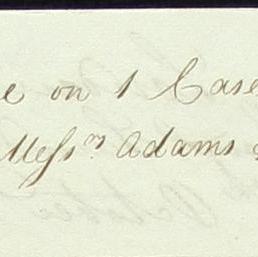 e on 1 Case
Messrs Adams &